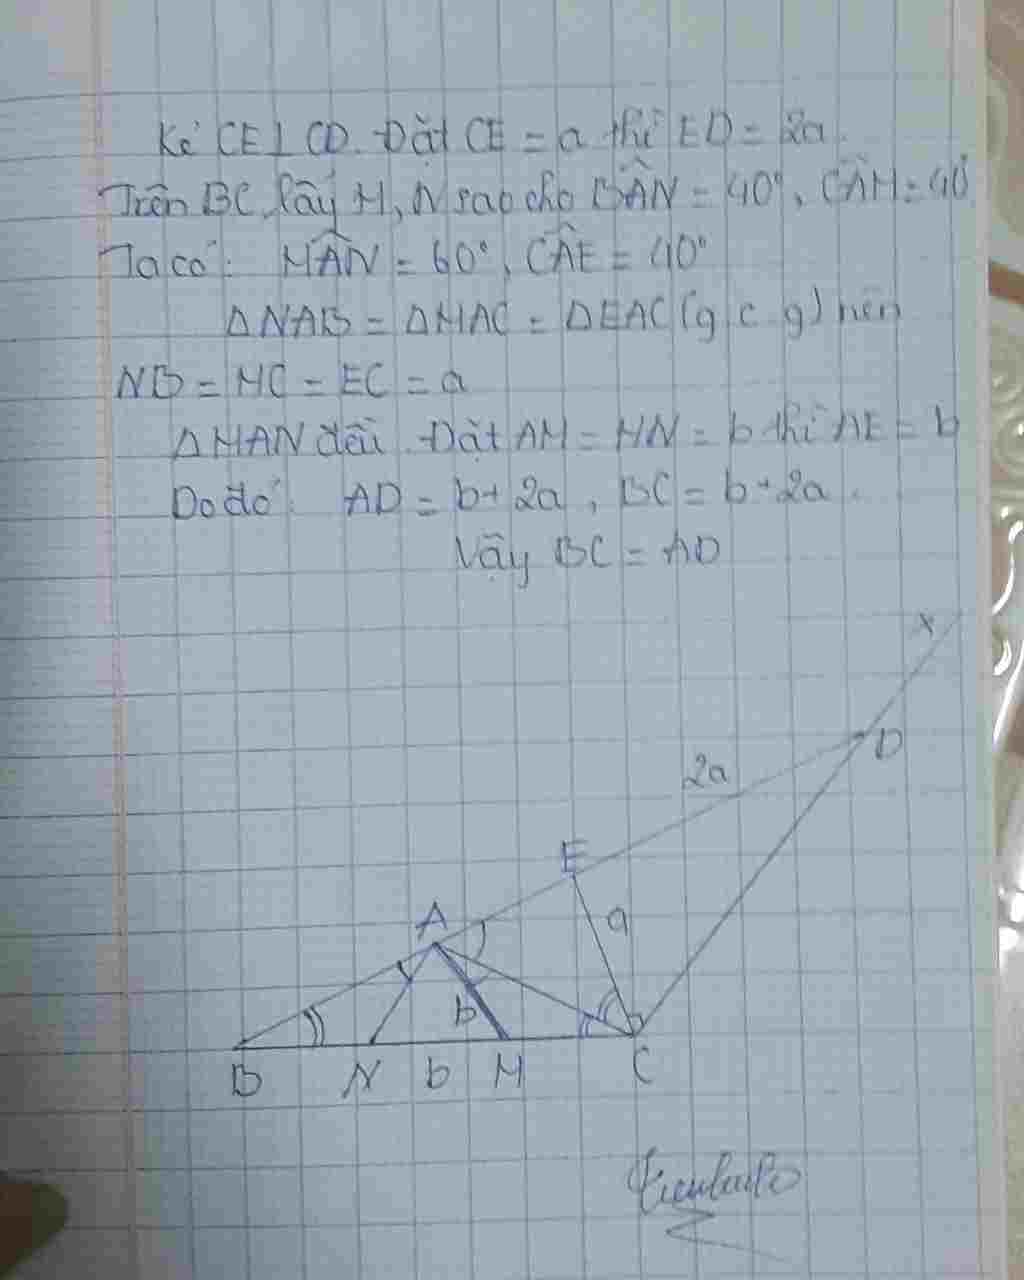 Kẻ CE⊥CD. Đặt CE = a thì ED = 2a.
Trên BC, lấy M, N sao cho BÂN = 40°, CÂM = 40°
Ta có: MÂN = 60°, CÂE = 40°
ΔNAB = ΔMAC = ΔEAC (g.c.g) nên
NB = MC = EC = a
ΔMAN đều. Đặt AM = MN = b thì AE = b
Do đó: AD = b+2a, BC = b+2a.
Vậy BC = AD
x
D
2a
E
a
A
b
B N b M C